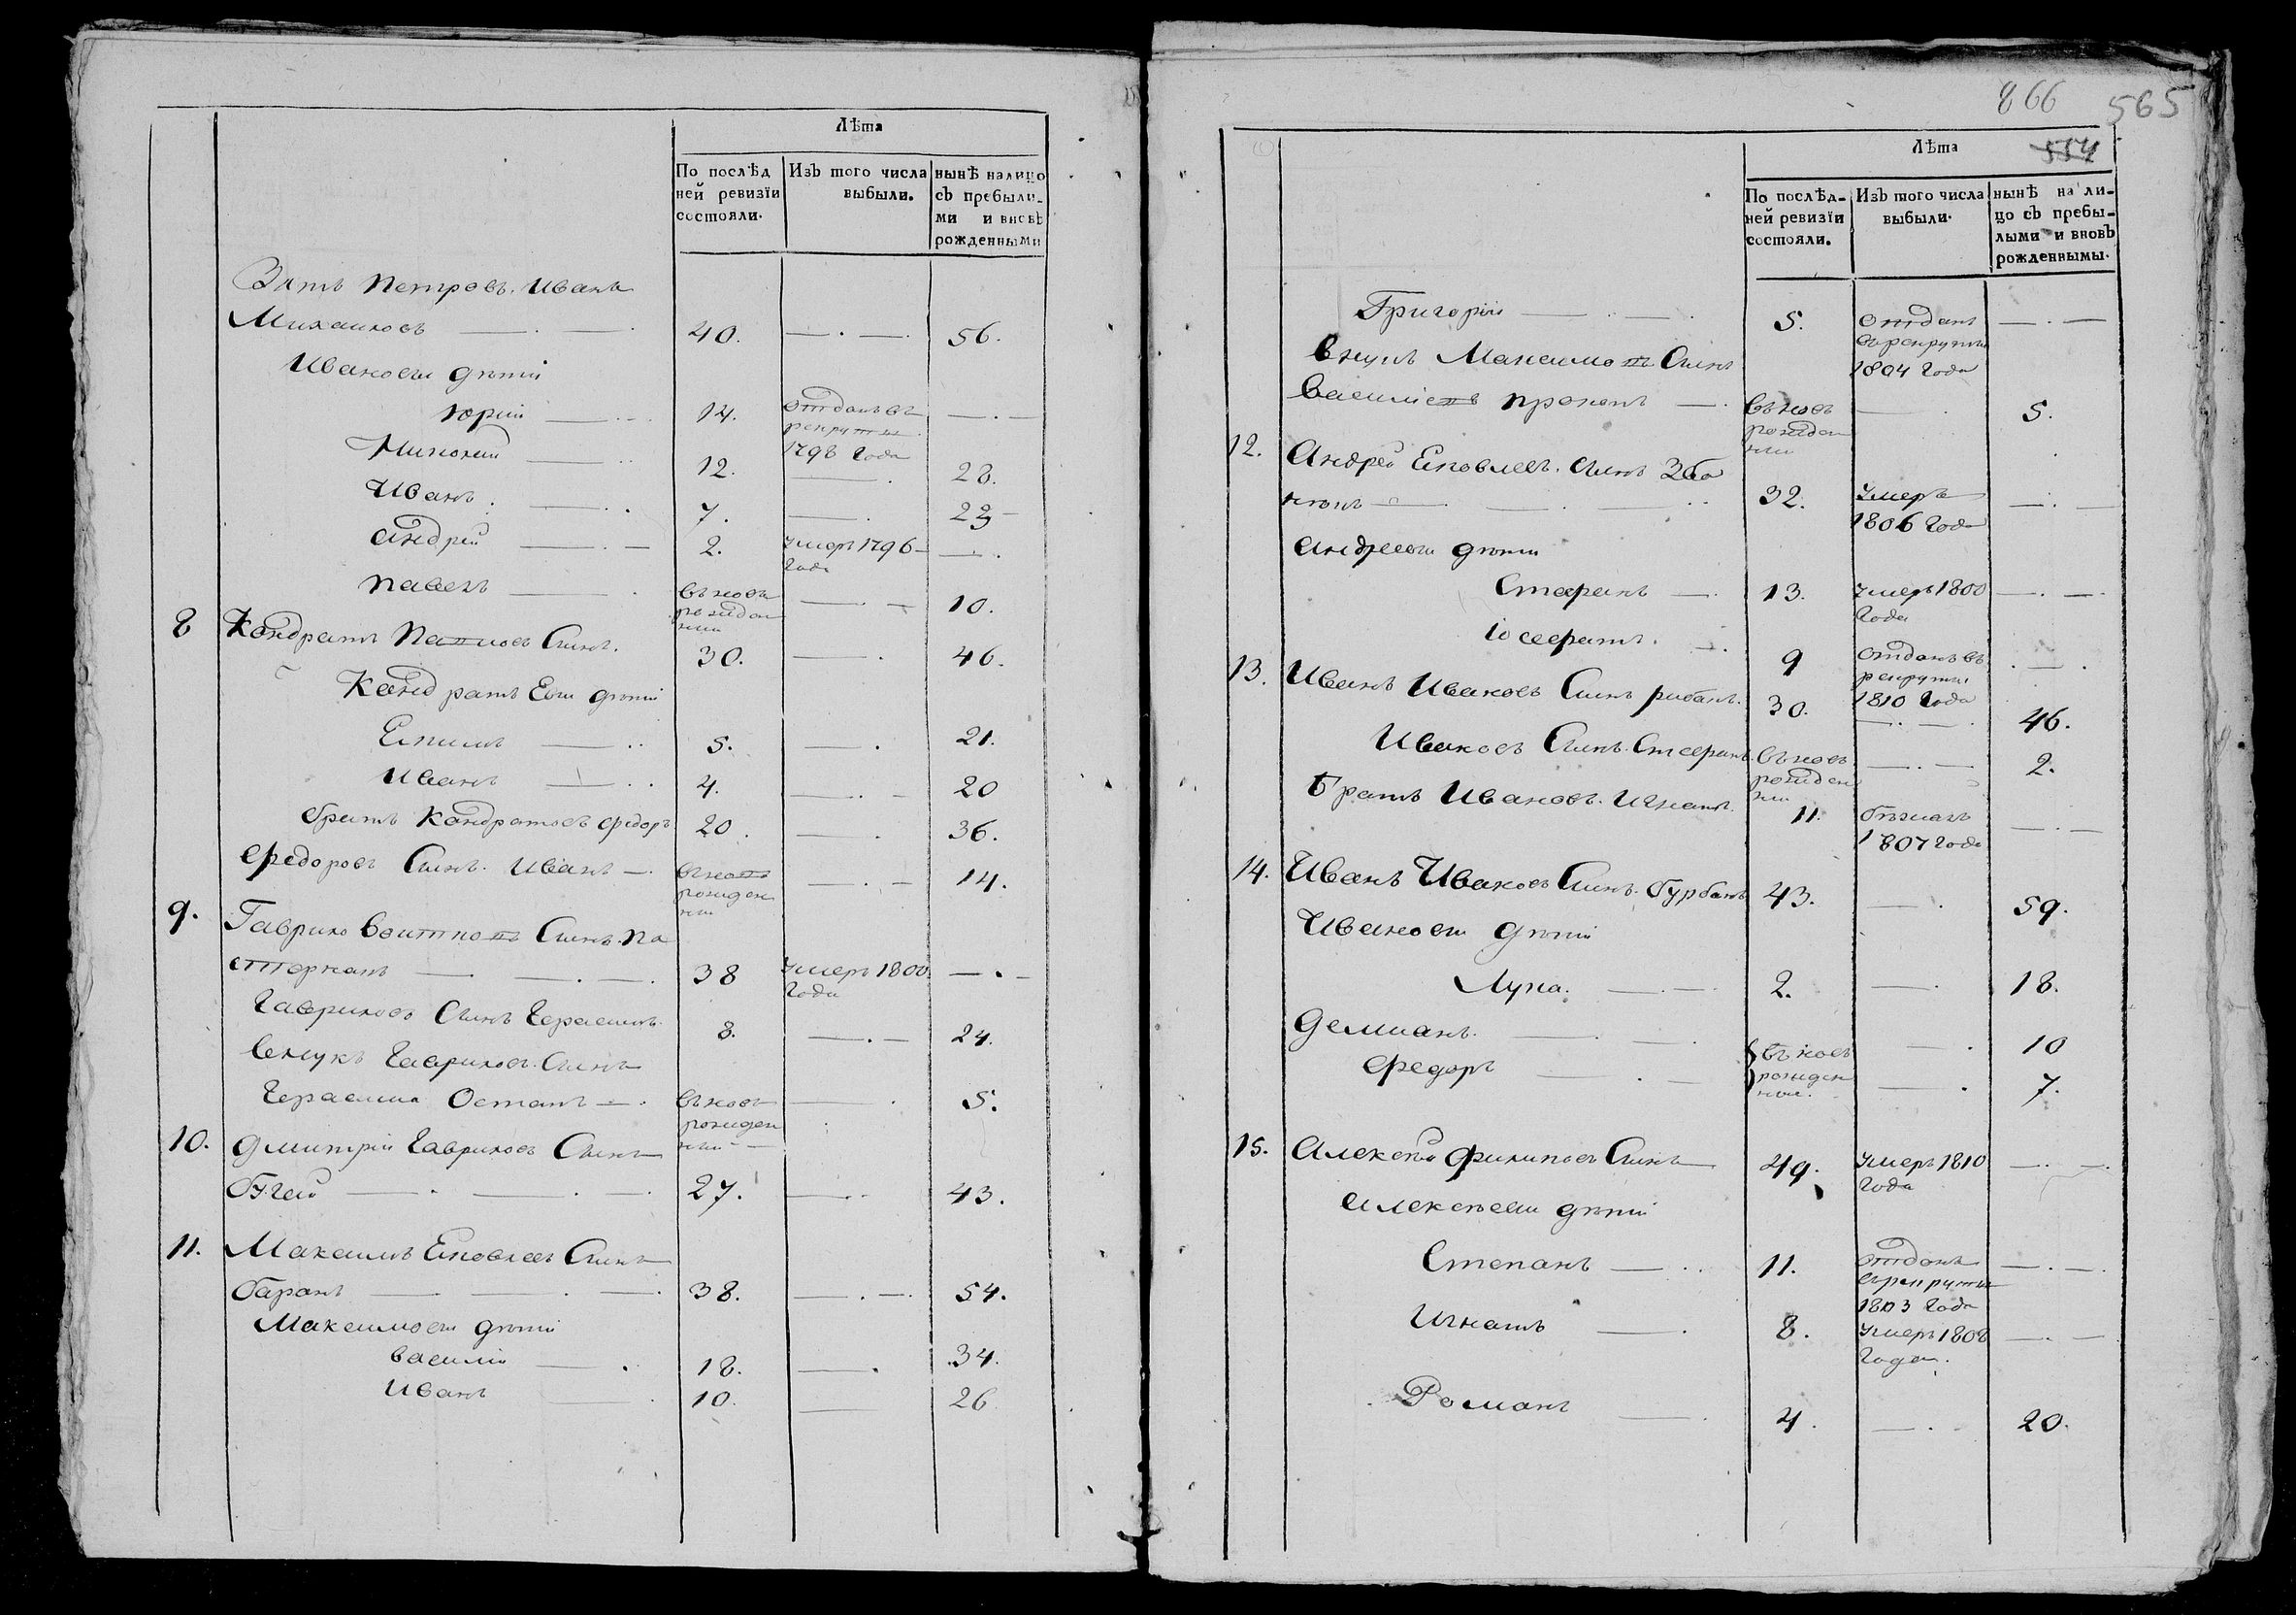 Лѣта
По послѣд ней ревизїи состояли.
Изъ того числа выбыли.
нынѣ налицо съ пребылы- ми и вновь рожденными
Зять Петровъ. Иванъ
Михаиловъ 40. 56.
Ивановы дѣти
Юрий 14. отданъ въ рекруты 1798 года
12. 28.
Иванъ. 7. 23
Андрей 2. умеръ 1796 года
Павелъ въновь рожденный 10.
8 Кондратъ Павловъ Сынъ. 30. 46.
Кандратъ Евы дѣти
5. 21.
Иванъ 4. 20
братъ Кондратовъ Федоръ 20. 36.
Федоровъ Сынъ. Иванъ въновь рожденный 14.
9. Гаврило Сынъ. Па
стернакъ 38 умеръ 1800 года
Гавриловъ Сынъ Герасимъ. 8. 24.
Внукъ Гавриловъ. Сынъ
Герасима Остапъ въновь рожденный 5.
10. Дмитрий Гавриловъ Сынъ
Бугай 27. 43.
11. Максимъ Яковлевъ Сынъ
баранъ 38. 54.
Максимовы дѣти
Василий 18. 34.
Иванъ 10. 26
866 565
554
Лѣта
По послѣд- ней ревизїи состояли.
Изъ того числа выбыли.
нынѣ на ли- цо съ пребы- лыми и вновь рожденнымы.
Григорий 5. отданъ въ рекруты 1804 года
Внукъ Максимовъ Сынъ
Прокопъ въновь рожденный 5.
12. Андрей Яковлевъ. Сынъ
32. умеръ 1806 года
Андреевы дѣти
Стефанъ 13. умеръ 1800 года
Іосефатъ. 9 отданъ въ рекруты 1810 года
13. Иванъ Ивановъ Сынъ рибакъ. 30. 46.
Ивановъ Сынъ. Стефанъ. въновь рожденный 2.
Братъ Ивановъ. Игнатъ. 11. бѣжалъ 1807 года
14. Иванъ Ивановъ Сынъ. Бурбанъ 43. 59.
Ивановы дѣти
Лука. 2. 18.
Демианъ. 10
Федоръ въновь рожденные. 7.
15. Алексѣй Филиповъ Сынъ 49. умеръ 1810 года
Алексѣевы дѣти
Степанъ 11. отданъ въ рекруты 1803 года
Игнатъ 8. умеръ 1808 года.
Романъ 4. 20.